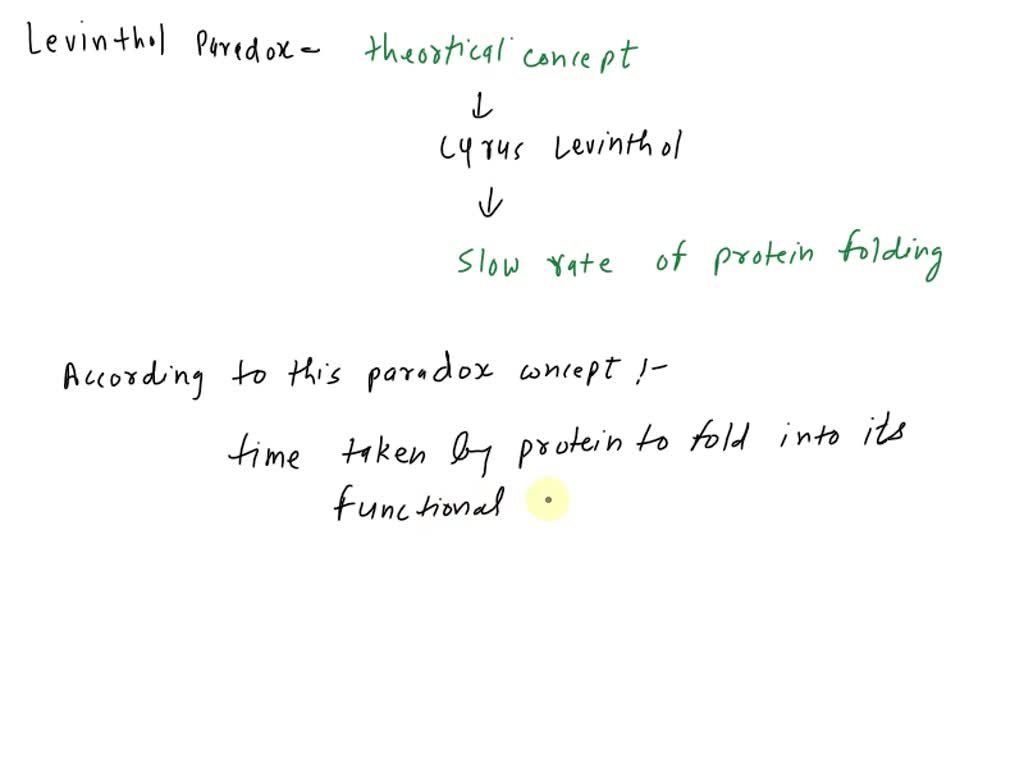 Levinthol Paredox - theortical concept
↓
Cyrus Levinthol
↓
Slow rate of protein folding
According to this paradox concept :-
time taken by protein to fold into its
functional